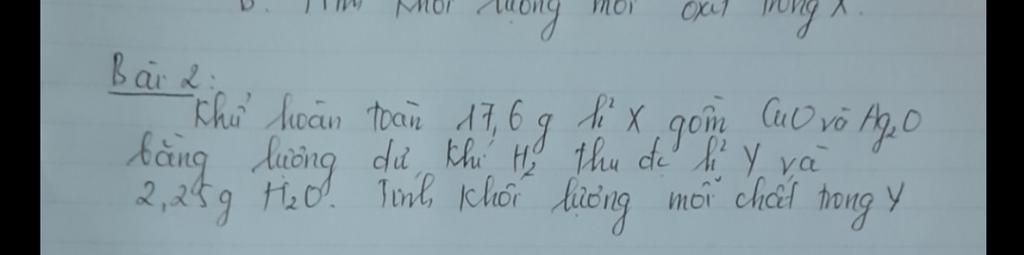 b. Tính khối lượng mỗi oxit trong X.
Bài 2:
Khử hoàn toàn 17,6 g h² X gồm CuO và Ag₂O
bằng lượng dư khí H₂ thu đc h² Y và
2,25g H₂O. Tính khối lượng mỗi chất trong Y